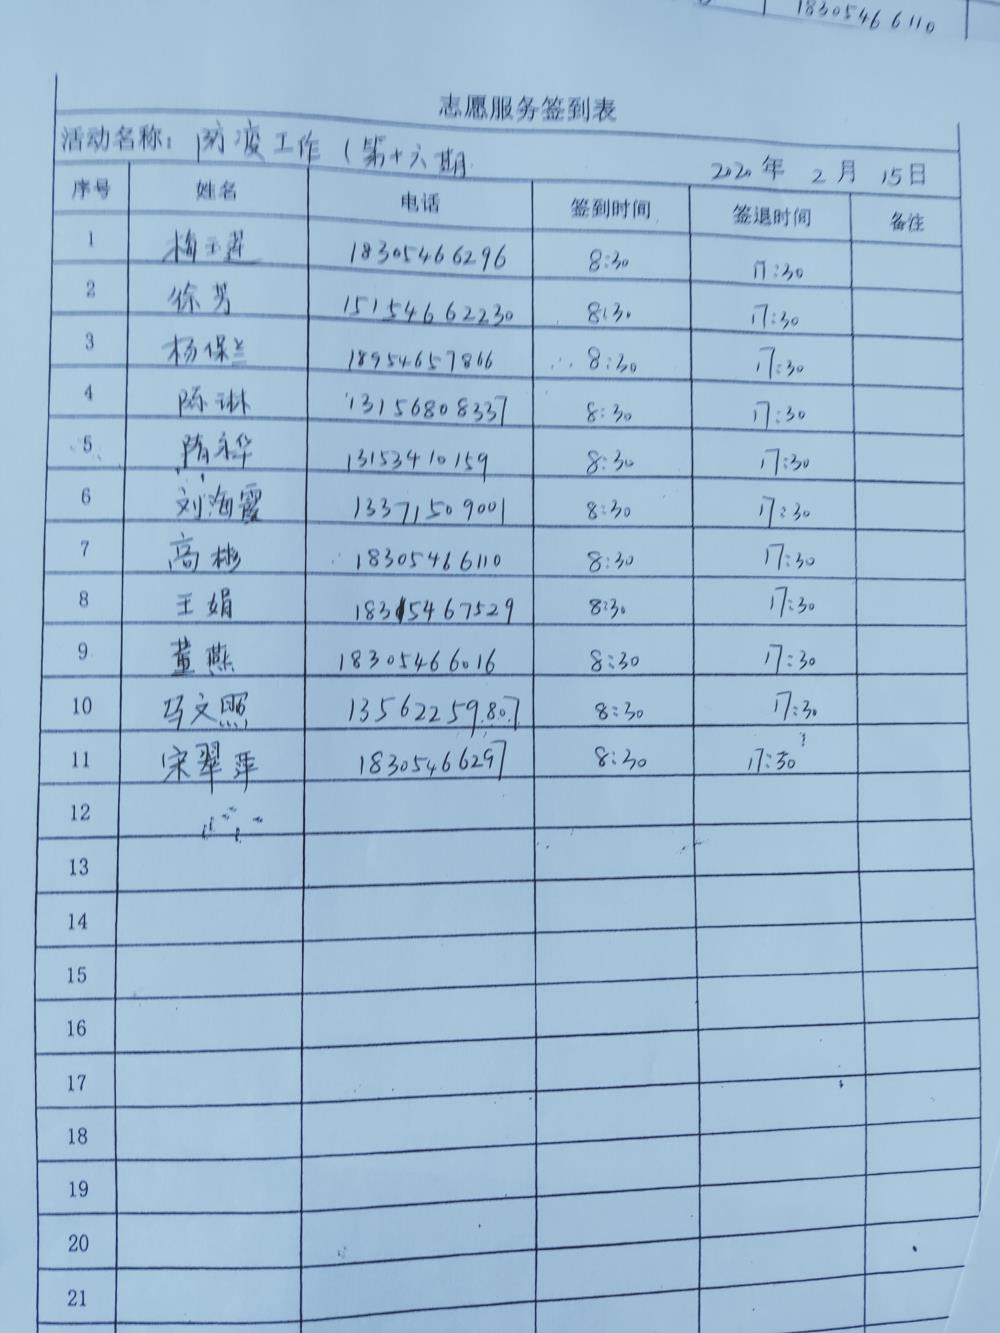 18305466110
志愿服务签到表
活动名称：防疫工作（第十六期 2020年 2月 15日
序号 姓名 电话 签到时间 签退时间 备注
1 梅玉莲 18305466296 8:30 17:30
2 徐芳 15154662230 8:30 17:30
3 杨保兰 18954657866 8:30 17:30
4 陈琳 13156808337 8:30 17:30
5 隋永华 13153410159 8:30 17:30
6 刘海霞 13371509001 8:30 17:30
7 高彬 18305466110 8:30 17:30
8 王娟 18315467529 8:30 17:30
9 董燕 18305466016 8:30 17:30
10 马文照 13562259807 8:30 17:30
11 宋翠萍 18305466297 8:30 17:30
12
13
14
15
16
17
18
19
20
21